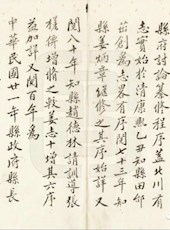 縣府討論纂修程序蓋北川有
志實始於清康熙乙丑知縣田邱
茁創為志畧有序閱七十三年知
縣姜炳章繼修之其序始詳又
閱八十年知縣趙德林請訓導張
樣俾增補之較姜志十增其六序
益加詳又閱百年為
中華民國廿一年縣政府縣長